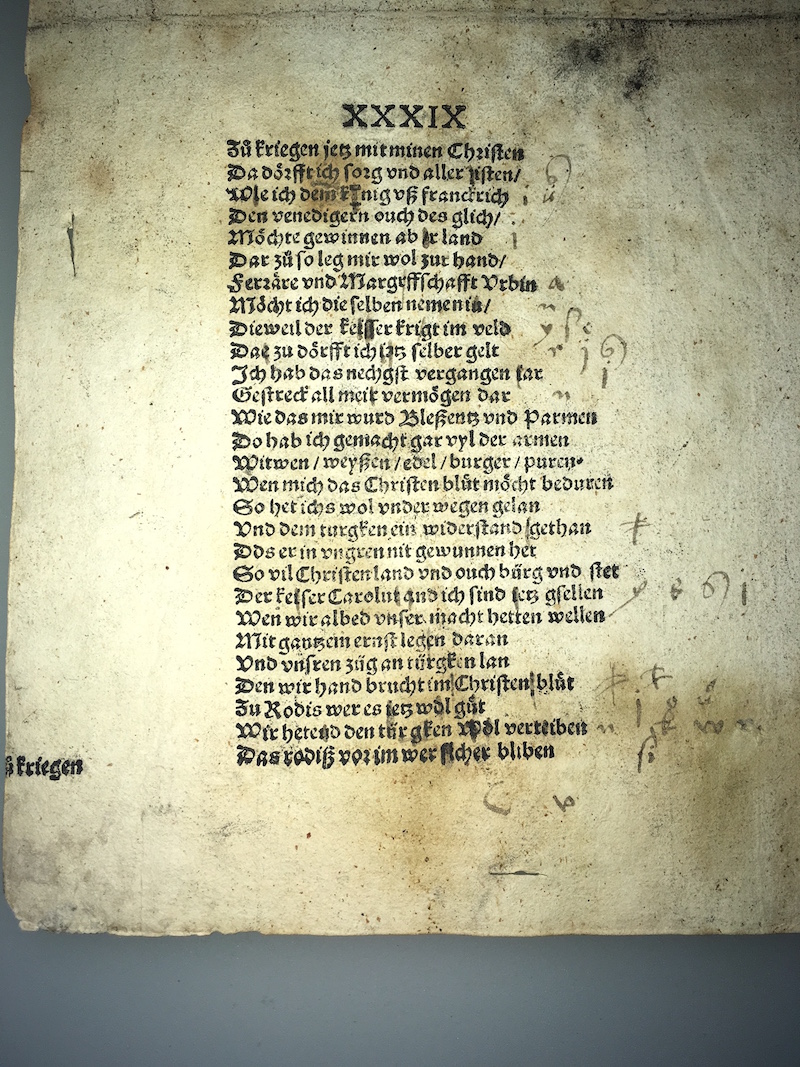 XXXIX
Zů kriegen jetz mit minen Christen
Da dörfft ich sorg vnd aller listen/
Wie ich dem künig vß franckrich
Den venedigern ouch des glich/
Möchte gewinnen ab ir land
Dar zů so leg mir wol zur hand/
Ferräre vnd Margrffschafft Vrbin
Möcht ich die selben nemen in/
Dieweil der keisser krigt im veld
Dar zu dörfft ich jetz selber gelt
Ich hab das nechgst vergangen iar
Gestreck all mein vermögen dar
Wie das mir wurd Bleßentz vnd Parmen
Do hab ich gemacht gar vyl der armen
Witwen / weyßen / edel / burger / puren
Wen mich das Christen blůt möcht beduren
So het ichs wol vnder wegen gelan
Vnd dem turgken ein widerstand gethan
Dds er in vngren nit gewunnen het
So vil Christen land vnd ouch bürg vnd stet
Der keiser Carolus and ich sind jetz gsellen
Wen wir albed vnser macht hetten wellen
Mit gantzem ernst legen daran
Vnd vnsren züg an türgken lan
Den wir hand brucht im Christen blůt
Zu Rodis wer es jetz wol gůt
Wir hetend den türgken wol vertriben
Das rodiß vor im wer sicher bliben
ů kriegen